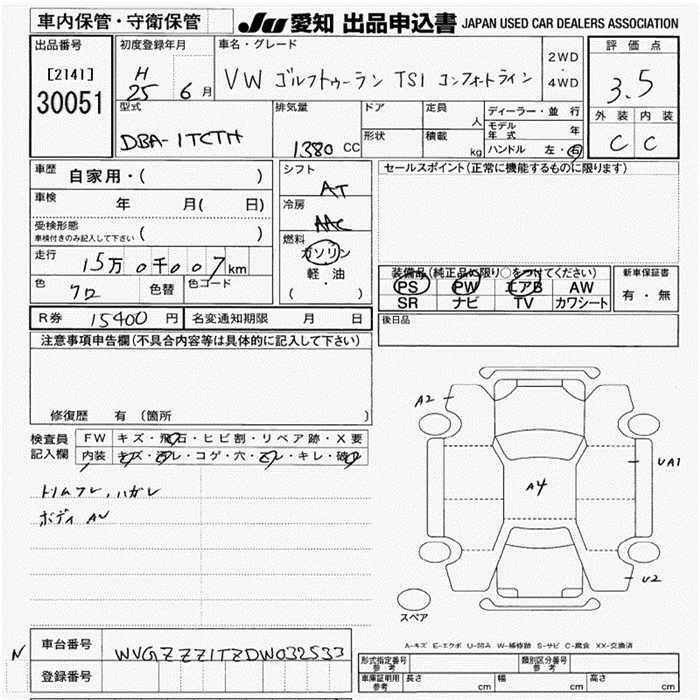 車内保管・守衛保管
JU 愛知 出品申込書 JAPAN USED CAR DEALERS ASSOCIATION
出品番号
[2141]
30051
初度登録年月
H
25 6 月
車名・グレード
VW ゴルフトゥーラン TSI コンフォートライン
2WD
・
4WD
評価点
3.5
外装 内装
C C
型式
DBA-1TCTH
排気量
1380 CC
ドア
形状
定員 人
積載 kg
ディーラー・並行
モデル年式 年
ハンドル 左・右
車歴 自家用・( )
車検 年 月( 日)
受検形態
車検付きのみ記入して下さい ( )
走行 15万 0千007 km
色 クロ 色替 色コード
シフト
AT
冷房
AAC
燃料
ガソリン
軽・油
( )
セールスポイント(正常に機能するものに限ります)
装備品(純正品に限り○をつけてください)
PS PW エアB AW
SR ナビ TV カワシート
新車保証書
有・無
R券 15400 円 名変通知期限 月 日
後日品
注意事項申告欄(不具合内容等は具体的に記入して下さい)
修復歴 有(箇所 )
検査員記入欄
FW キズ・飛石・ヒビ割・リペア跡・X要
内装 キズ・汚レ・コゲ・穴・スレ・キレ・破レ
トリムスレ、ハガレ
ボディ AU
A2
UA1
A4
U2
スペア
A-キズ E-エクボ U-凹み W-補修跡 S-サビ C-腐食 XX-交換済
N
車台番号 WVGZZZ1TZDW032533
登録番号
形式指定番号 参考
類別区分番号 参考
車庫証明用 参考 長さ cm 幅 cm 高さ cm